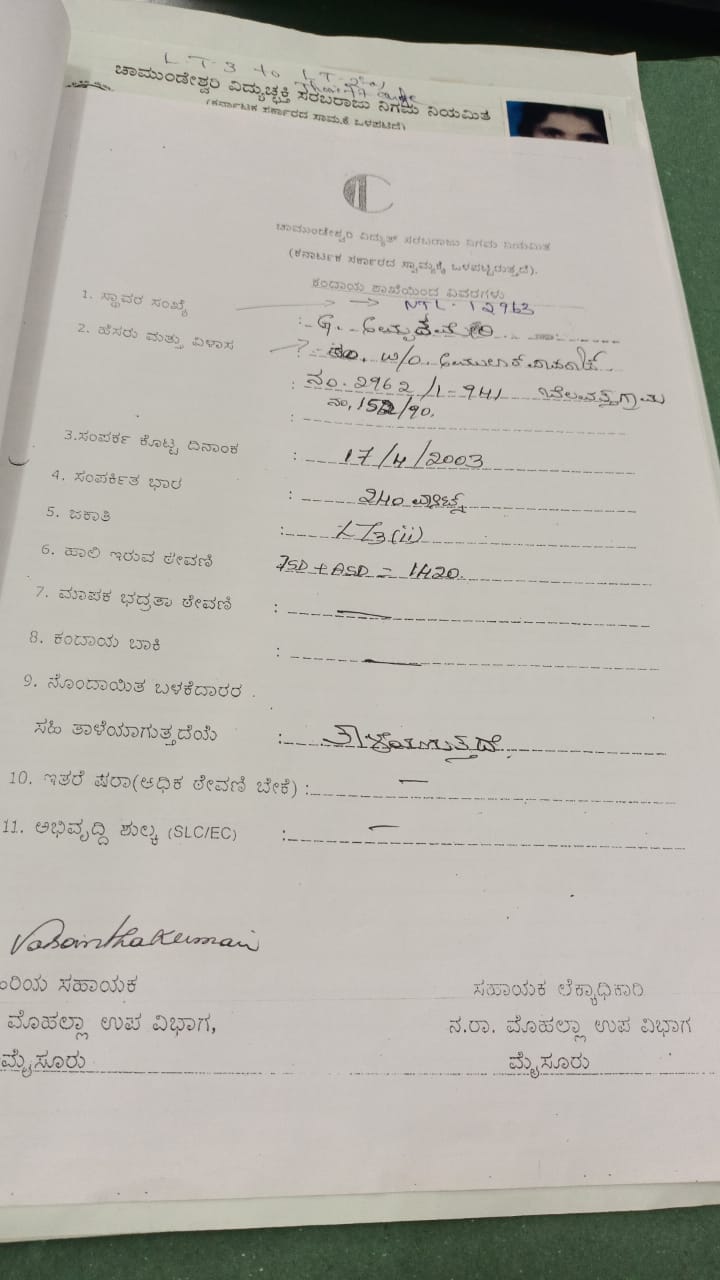 LT3 to LT-2(a)
ಚಾಮುಂಡೇಶ್ವರಿ ವಿದ್ಯುಚ್ಛಕ್ತಿ ಸರಬರಾಜು ನಿಗಮ ನಿಯಮಿತ
(ಕರ್ನಾಟಕ ಸರ್ಕಾರದ ಸ್ವಾಮ್ಯಕ್ಕೆ ಒಳಪಟ್ಟಿದೆ)
ಚಾಮುಂಡೇಶ್ವರಿ ವಿದ್ಯುತ್ ಸರಬರಾಜು ನಿಗಮ ನಿಯಮಿತ
(ಕರ್ನಾಟಕ ಸರ್ಕಾರದ ಸ್ವಾಮ್ಯಕ್ಕೆ ಒಳಪಟ್ಟಿರುತ್ತದೆ).
ಕಂದಾಯ ಶಾಖೆಯಿಂದ ವಿವರಗಳು
1. ಸ್ಥಾವರ ಸಂಖ್ಯೆ → NTL-12963
2. ಹೆಸರು ಮತ್ತು ವಿಳಾಸ : G.
w/o
: ನಂ. 2962/1-941 ಬೆಲವತ್ತ ಗ್ರಾಮ
: ನಂ, 152/90.
3.ಸಂಪರ್ಕ ಕೊಟ್ಟ ದಿನಾಂಕ : 17/4/2003
4. ಸಂಪರ್ಕಿತ ಭಾರ : 240 ವ್ಯಾಟ್ಸ್
5. ಜಕಾತಿ : LT3(ii)
6. ಹಾಲಿ ಇರುವ ಠೇವಣಿ ISD + ASD = 1420.
7. ಮಾಪಕ ಭದ್ರತಾ ಠೇವಣಿ : —
8. ಕಂದಾಯ ಬಾಕಿ : —
9. ನೊಂದಾಯಿತ ಬಳಕೆದಾರರ .
ಸಹಿ ತಾಳೆಯಾಗುತ್ತದೆಯೆ : ತಾಳೆಯಾಗುತ್ತದೆ.
10. ಇತರೆ ಷರಾ(ಅಧಿಕ ಠೇವಣಿ ಬೇಕೆ) : —
11. ಅಭಿವೃದ್ದಿ ಶುಲ್ಕ (SLC/EC) : —
Vasanthakumari
ಹಿರಿಯ ಸಹಾಯಕ ಸಹಾಯಕ ಲೆಕ್ಕಾಧಿಕಾರಿ
ಮೊಹಲ್ಲಾ ಉಪ ವಿಭಾಗ, ನ.ರಾ. ಮೊಹಲ್ಲಾ ಉಪ ವಿಭಾಗ
ಮೈಸೂರು ಮೈಸೂರು